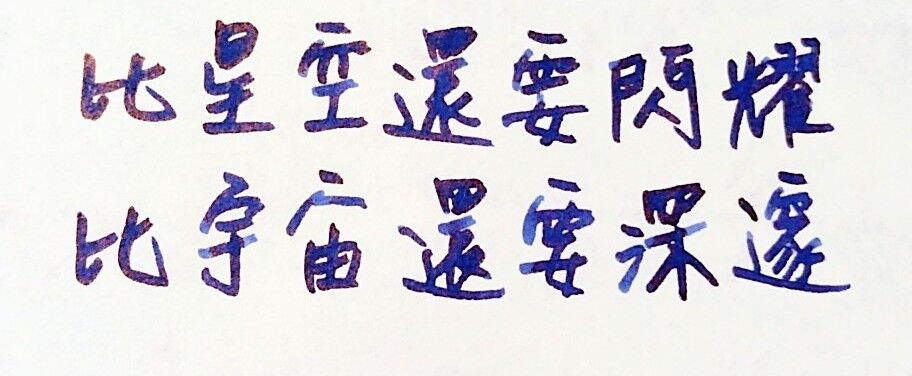 比星空還要閃耀
比宇宙還要深邃